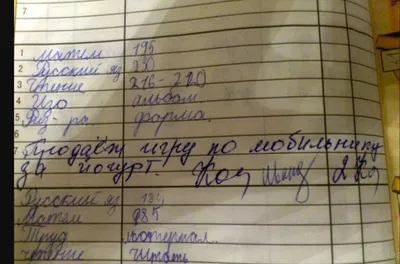 7
1 матем 195
2 Русский яз
3 Чтение 216-220
4 Изо альбом.
5 Физ-ра. форма.
7 Продаём игру по мобильнику
за йогурт.
Русский яз
матем 985
Труд материал.
чтение читать